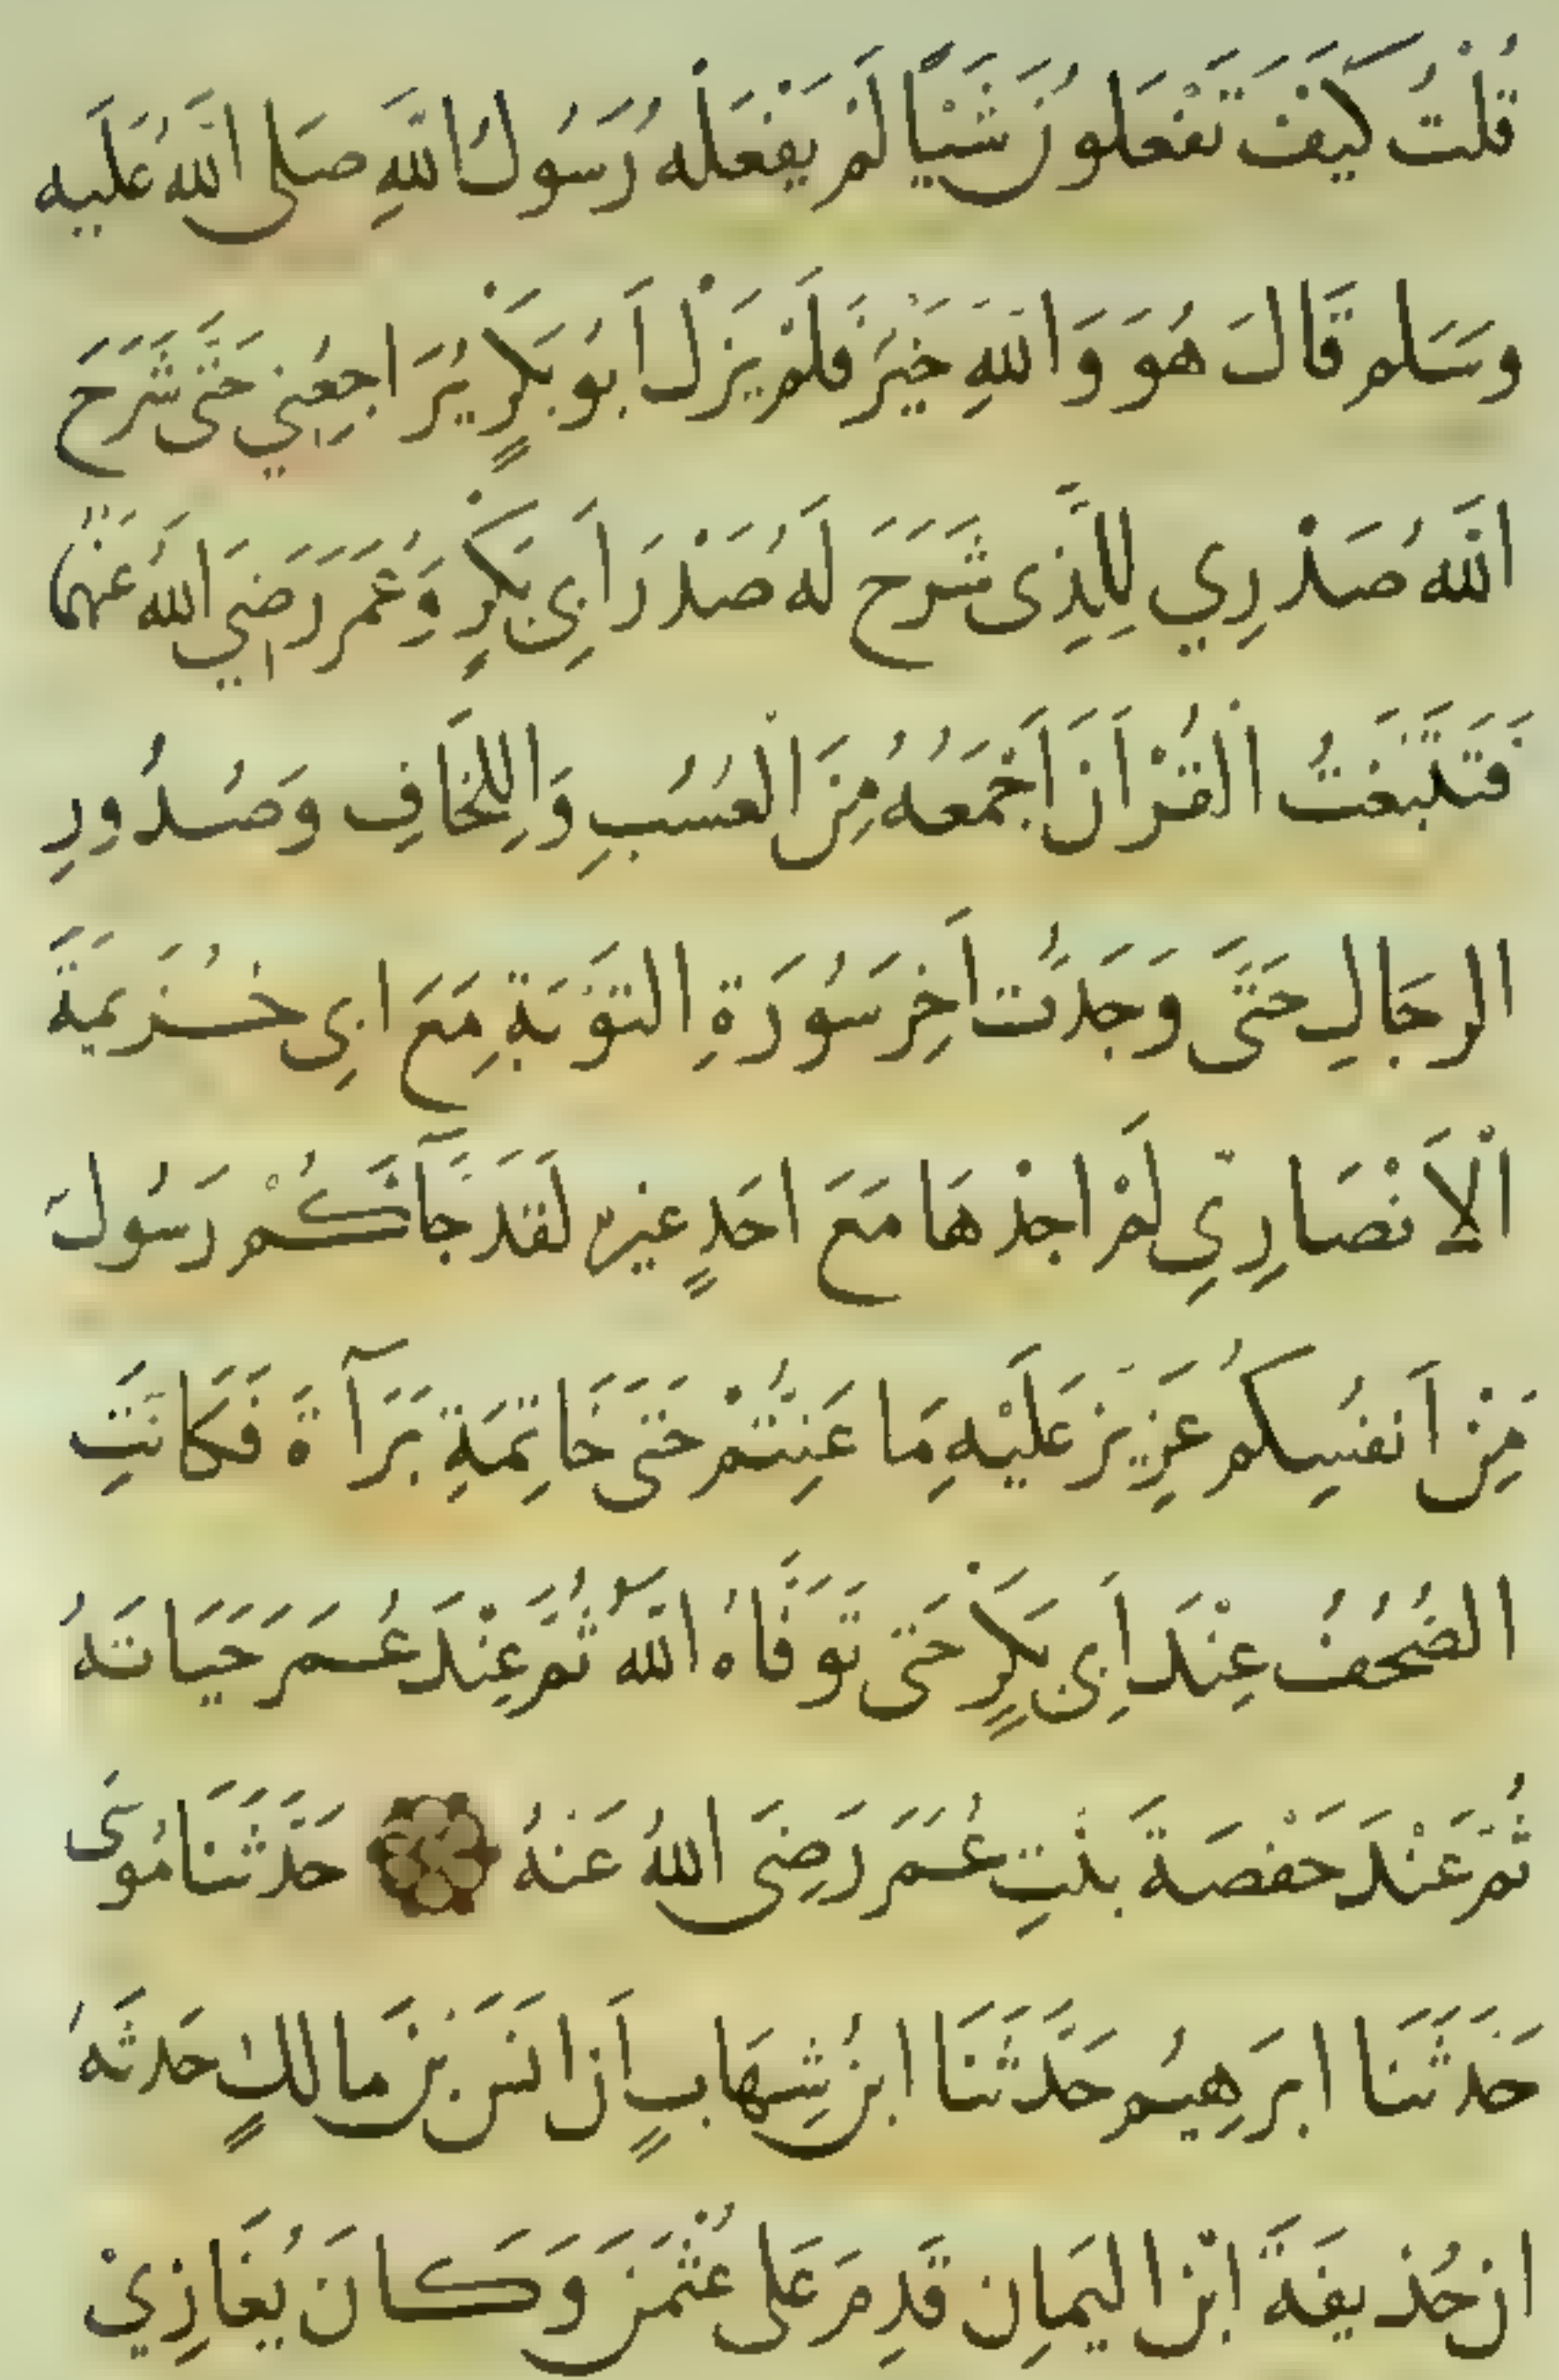 قُلْتُ كَيْفَ تَفْعَلُونَ شَيْئًا لَمْ يَفْعَلْهُ رَسُولُ اللَّهِ صَلَى اللَّهُ عَلَيه
وَسَلم قَالَ هُوَ وَاللَّهِ خَيْرٌ فَلَمْ يَزَلْ اَبُو بَكْرٍ يُرَاجِعُنِي حَتَّى شَرَحَ
اللَّهُ صَدْرِي لِلَّذِى شَرَحَ لَهُ صَدْرَ اَبِى بَكْرٍ وَعُمَرَ رَضِيَ اللهُ عَنْهُمَا
فَتَتَبَّعْتُ الْقُرْاَنَ اَجْمَعُهُ مِنَ الْعُسُبِ وَاللِّخَافِ وَصُدُورِ
الرجَالِ حَتَّى وَجَدتُّ اَخِرَ سُورَةِ التَوْبَةِ مَعَ ابِى خُزَيمَةَ
اْلاَنْصَارِىِّ لَمْ اجِدْهَا مَعَ احَدٍ غيره لَقَدَ جَآَكُمْ رَسُولَ
مِنْ اَنفُسِكُم عَزِيزَ عَلَيْهِ مَا عَنِتُّمْ حَتَى خَاتِمَةِ بَرَآةَ فَكَانَتِ
الصُحُفُ عِنْدَ اَبِى بَكْرٍ حَتى تَوَفَّاهُ اللَّهُ ثُمَّ عِنْدَ عُمَرَ حَيَاتَهُ
ثُمَّ عَنْدَ حَفْصَةَ بنْتِ عُمَرَ رَضِىَ اللهُ عَنْهُ حَدَّثَنَا مُوسَى
حَدَثَنَا ابرَهِيُم حَدَّثَنَا ابنُ شِهَابٍ اَن انَسَ بْنَ مالكٍ حَدثَهُ
ان حُذيفَةَ ابْنَ اليَمَانِ قَدِمَ عَلى عُثْمَنَ وَكَانَ يُغَازِيْ